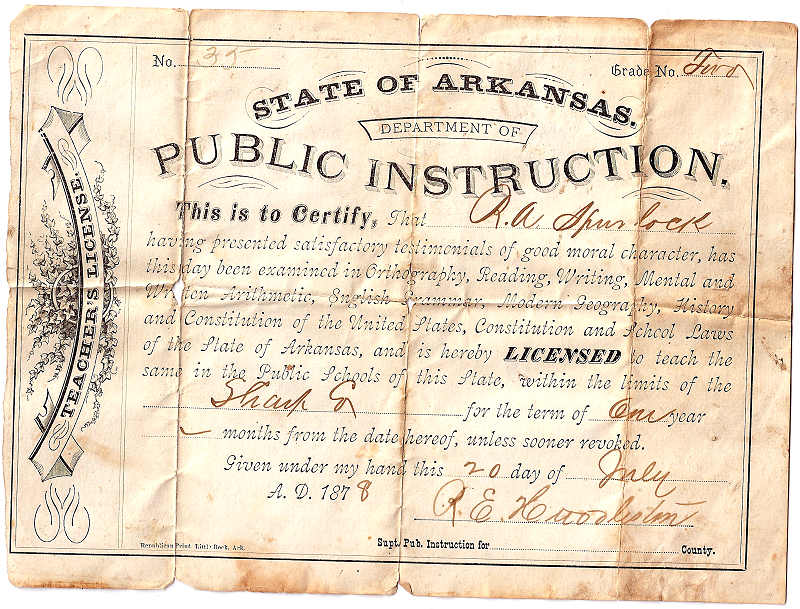 No. 35
Grade No. Two
STATE OF ARKANSAS.
DEPARTMENT OF
PUBLIC INSTRUCTION.
TEACHER'S LICENSE.
This is to Certify, That R. A. Spurlock
having presented satisfactory testimonials of good moral character, has
this day been examined in Orthography, Reading, Writing, Mental and
Written Arithmetic, English Grammar, Modern Geography, History
and Constitution of the United States, Constitution and School Laws
of the State of Arkansas, and is hereby LICENSED to teach the
same in the Public Schools of this State, within the limits of the
Sharp Co for the term of One year
months from the date hereof, unless sooner revoked.
Given under my hand this 20 day of July
A. D. 1878
R. E.
Supt. Pub. Instruction for County.
Republican Print Little Rock, Ark.